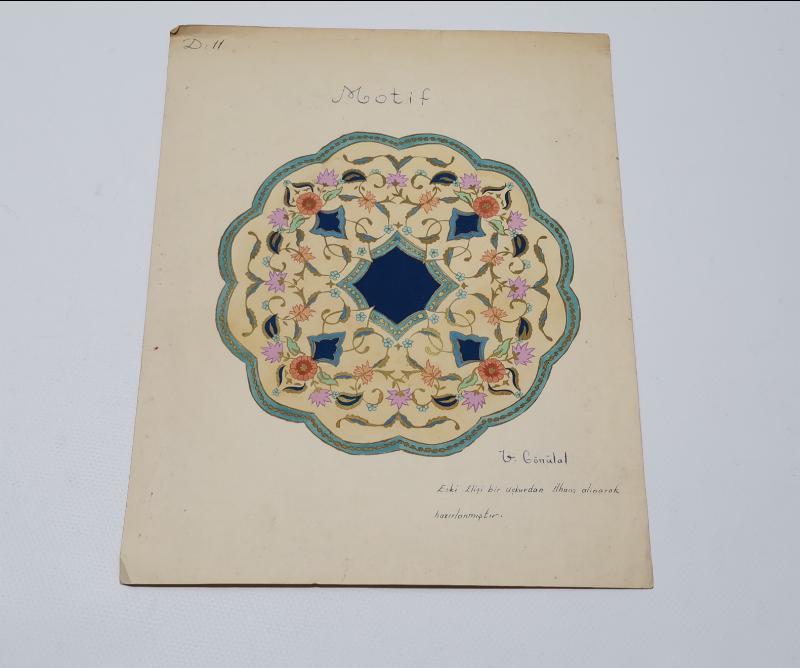 D: 11
Motif
V. Gönülal
Eski Elişi bir uçkurdan ilham alınarak
hazırlanmıştır.